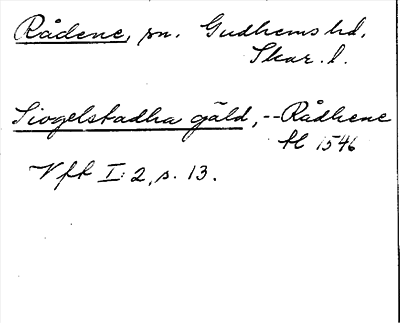 Rådene, sn. Gudhems hd.
Skar. l.
Siogelstadha gäld, -- Rådhene
1546
Vfk I:2, s. 13.